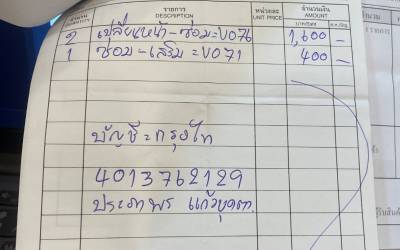 จำนวน QUANTITY รายการ DESCRIPTION หน่วยละ UNIT PRICE จำนวนเงิน AMOUNT
2 เปลี่ยนหน้า-ซ่อม=V076 1,600 -
1 ซ่อม-เสริม=V071 400 -
บัญชี=กรุงไท
4013762129
ประภาพร